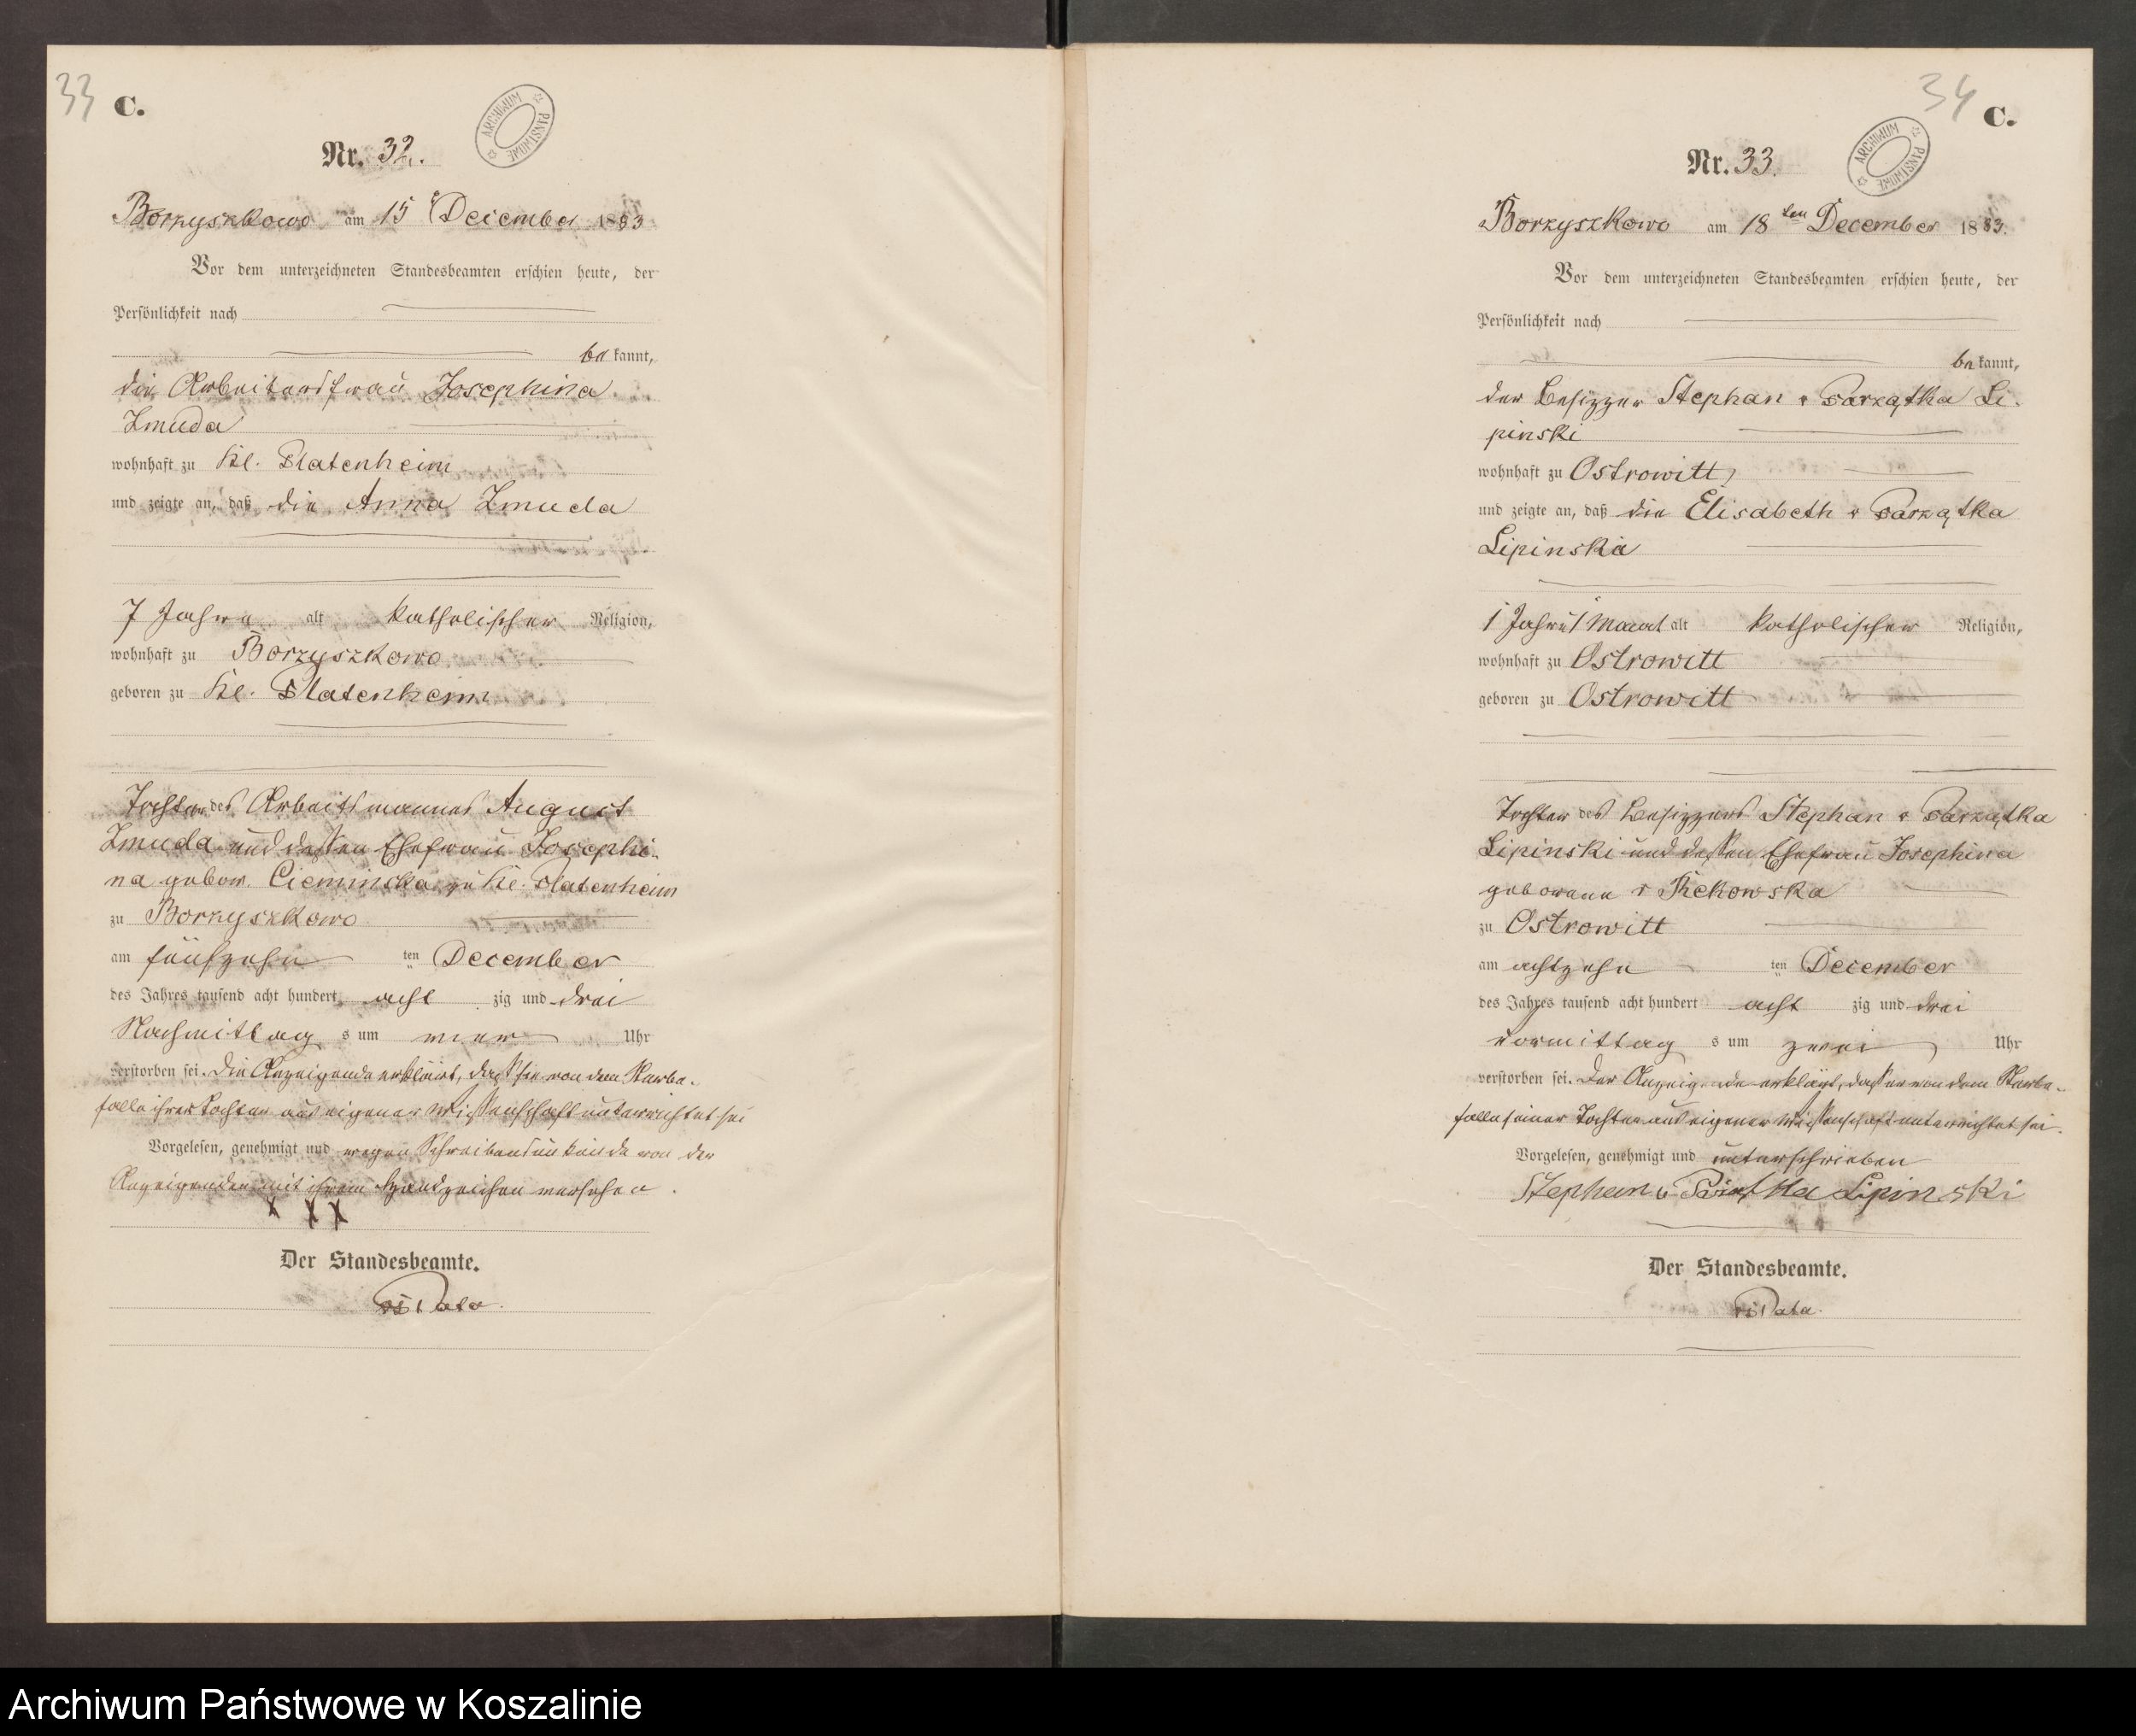 33
C.
ARCHIWUM PAŃSTWOWE
Nr. 32.
Borzyszkowo am 15 December 1883
Vor dem unterzeichneten Standesbeamten erschien heute, der
Persönlichkeit nach
be kannt,
die Arbeiterfrau Josephina
Zmuda
wohnhaft zu Kl. Platenheim
und zeigte an, daß die Anna Zmuda
7 Jahre alt katholischer Religion,
wohnhaft zu Borzyszkowo
geboren zu Kl. Platenheim
Tochter des Arbeitsmannes August
Zmuda und dessen Ehefrau Josephi-
na gebor. Cieminska zu Kl. Platenheim
zu Borzyszkowo
am fünfzehn ten December
des Jahres tausend acht hundert acht zig und drei
Nachmittag s um vier Uhr
verstorben sei. Die Anzeigende erklärt, daß sie von dem Sterbe-
falle ihrer Tochter aus eigener Wissenschaft unterrichtet sei
Vorgelesen, genehmigt und wegen Schreibensunkunde von der
Anzeigenden mit ihrem Handzeichen versehen.
X X X
Der Standesbeamte.
34
C.
ARCHIWUM PAŃSTWOWE
Nr. 33.
Borzyszkowo am 18ten December 1883.
Vor dem unterzeichneten Standesbeamten erschien heute, der
Persönlichkeit nach
be kannt,
der Besitzer Stephan v Parzątka Li-
pinski
wohnhaft zu Ostrowitt
und zeigte an, daß die Elisabeth v Parzątka
Lipinska
1 Jahr 1 Monat alt katholischer Religion,
wohnhaft zu Ostrowitt
geboren zu Ostrowitt
Tochter des Besitzers Stephan v Parzątka
Lipinski und dessen Ehefrau Josephina
geborene v Rekowska
zu Ostrowitt
am achtzehn ten December
des Jahres tausend acht hundert acht zig und drei
vormittag s um zwei Uhr
verstorben sei. Der Anzeigende erklärt, daß er von dem Sterbe-
falle seiner Tochter aus eigener Wissenschaft unterrichtet sei.
Vorgelesen, genehmigt und unterschrieben
Stephan v Parzątka Lipinski
Der Standesbeamte.
Archiwum Państwowe w Koszalinie